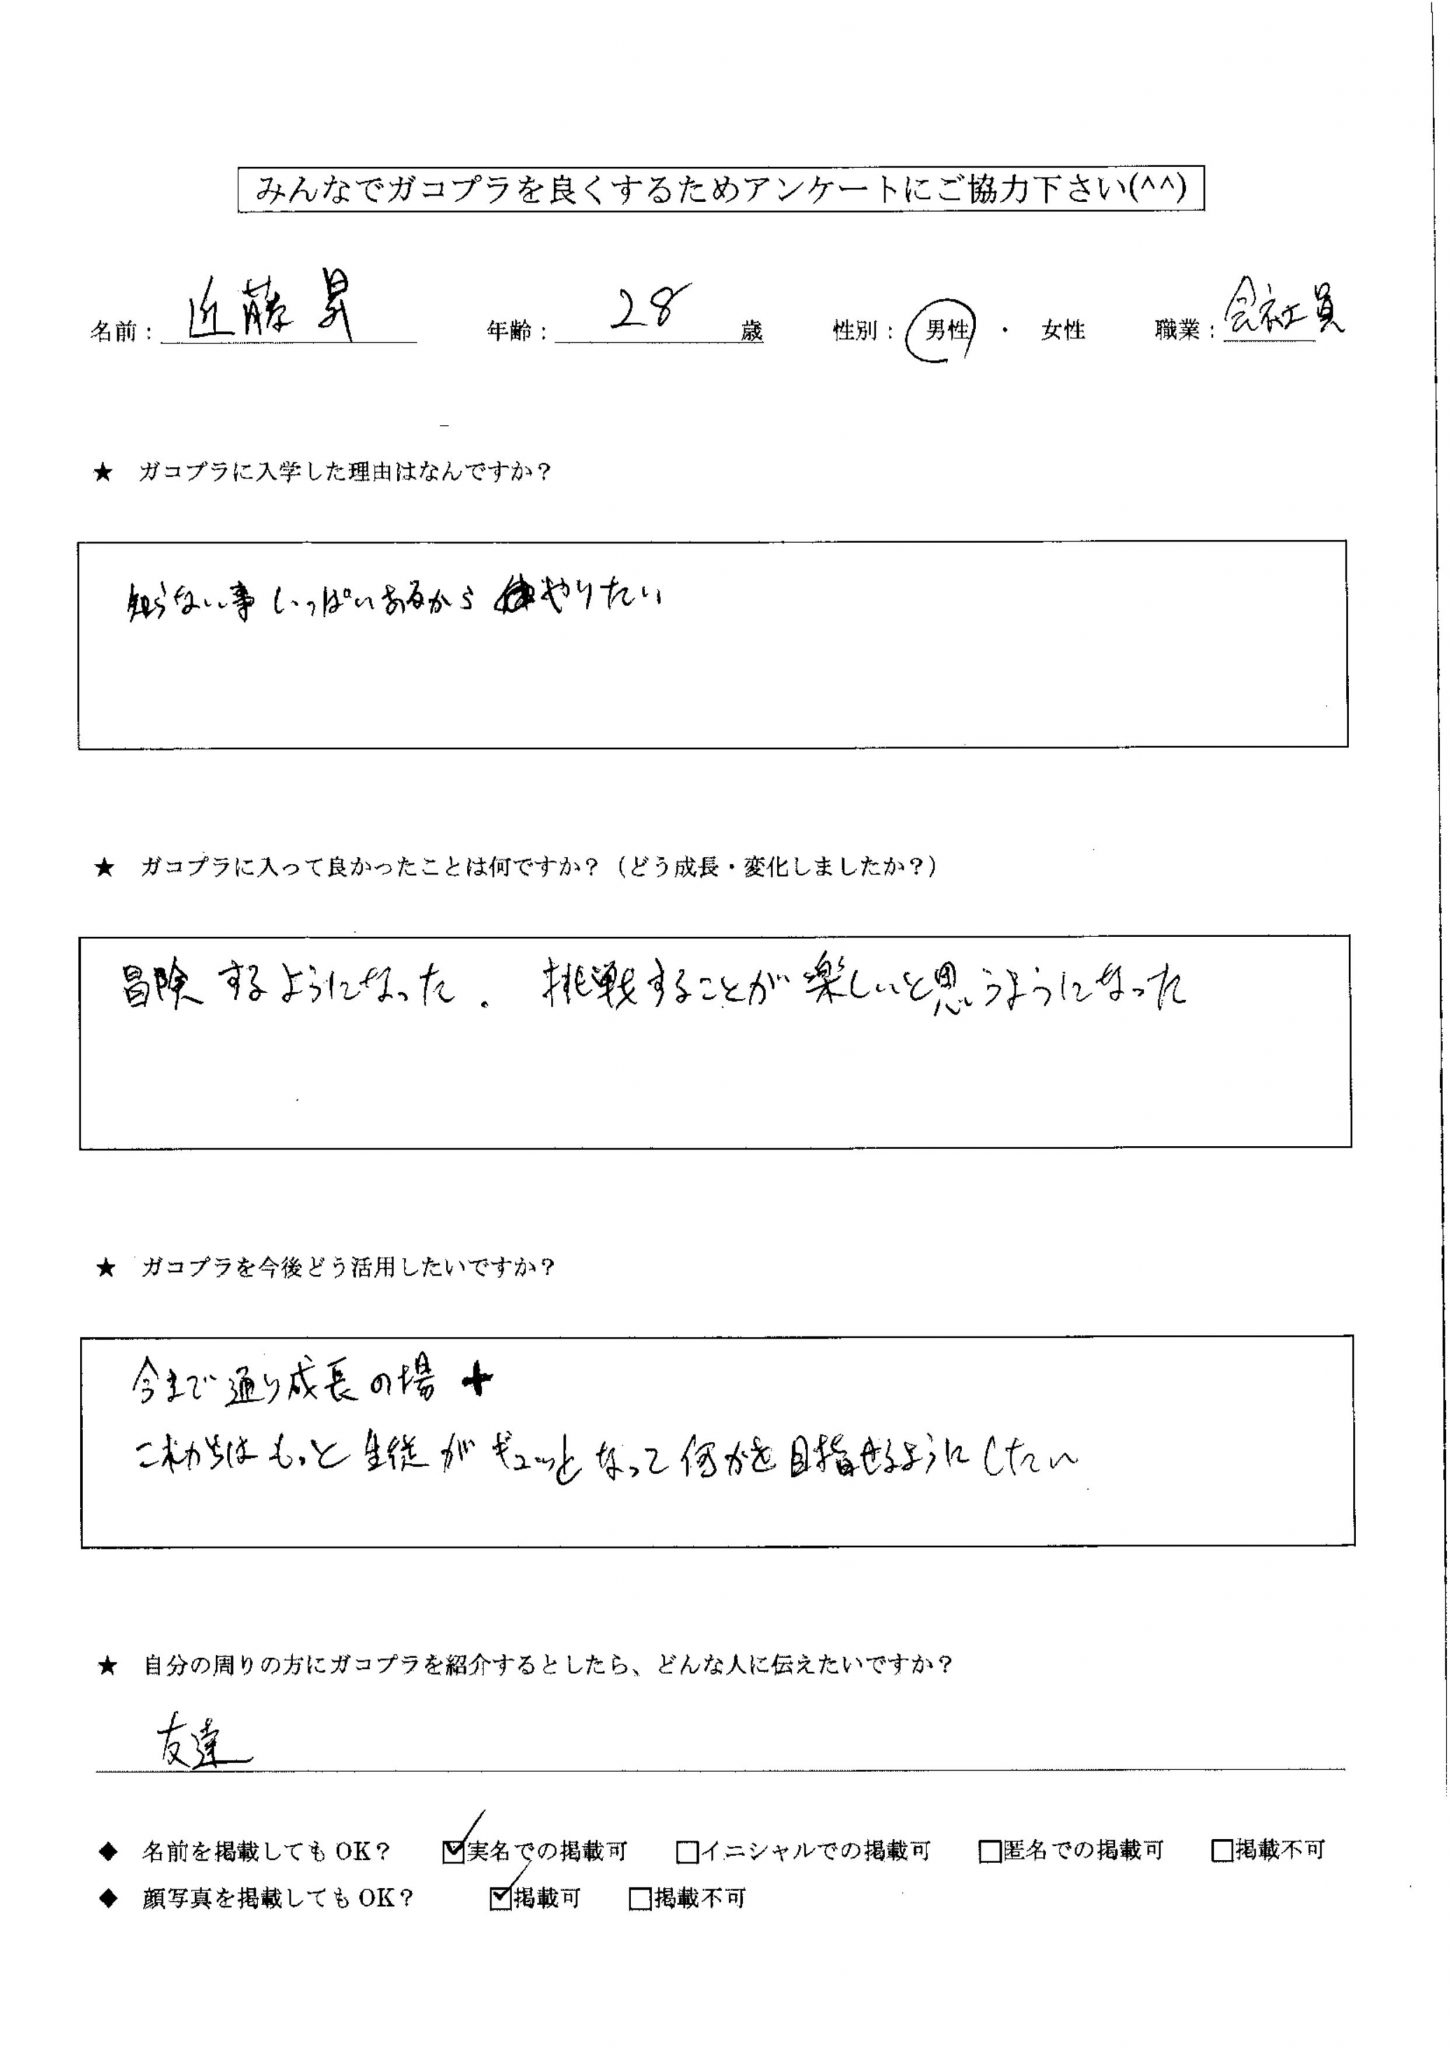 みんなでガコプラを良くするためアンケートにご協力下さい(^^)
名前：近藤昇 年齢：28歳 性別：男性 ・ 女性 職業：会社員
★ ガコプラに入学した理由はなんですか？
知らない事いっぱいあるからやりたい
★ ガコプラに入って良かったことは何ですか？（どう成長・変化しましたか？）
冒険するようになった. 挑戦することが楽しいと思うようになった
★ ガコプラを今後どう活用したいですか？
今まで通り成長の場 +
これからはもっと生徒がギュッとなって何かを目指せるようにしたい
★ 自分の周りの方にガコプラを紹介するとしたら、どんな人に伝えたいですか？
友達
◆ 名前を掲載してもOK？ ☑実名での掲載可 □イニシャルでの掲載可 □匿名での掲載可 □掲載不可
◆ 顔写真を掲載してもOK？ ☑掲載可 □掲載不可